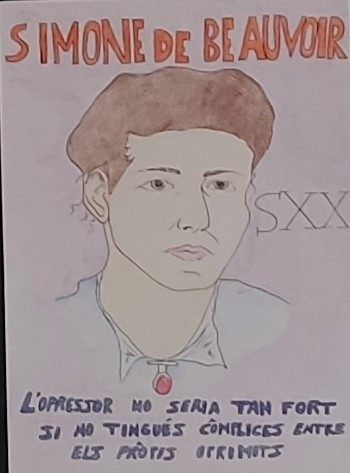 SIMONE DE BEAUVOIR
SXX
L'OPRESSOR NO SERIA TAN FORT
SI NO TINGUÉS CÒMPLICES ENTRE
ELS PROPIS OPRIMITS